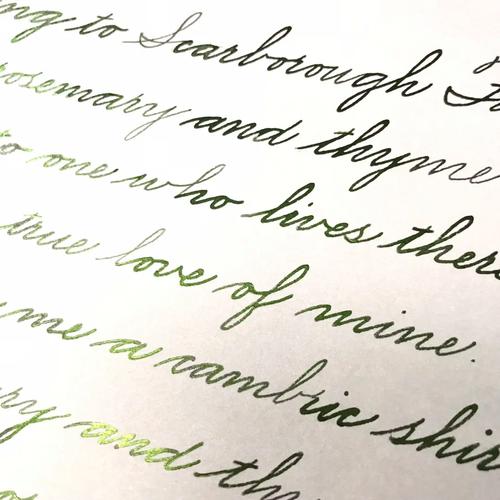 ng to Scarborough F
rosemary and thyme
to one who lives there
true love of mine.
me a cambric shir
ry and th